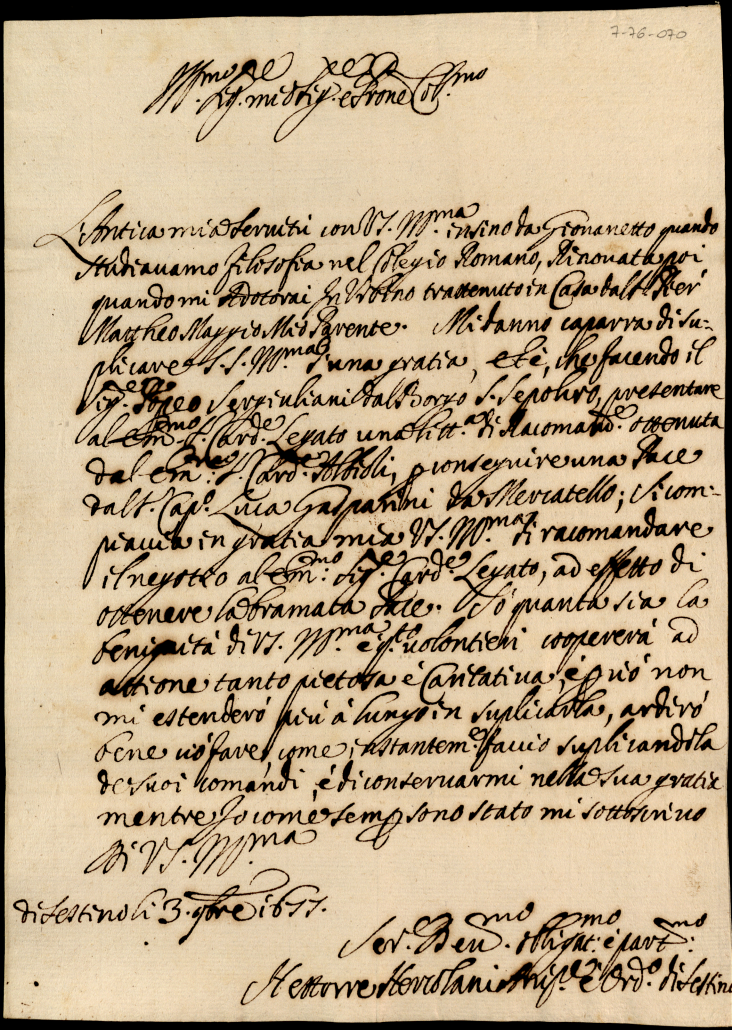 7-76-070
Ill.mo Sig.re mio Sig.re e Prone Col.mo
L'Antica mia servitù con VS. Ill.ma insino da Giovanetto quando
studiavamo filosofia nel Colegio Romano, Rinovata poi
quando mi Adotorai In Urbino trattenuto in Casa dal S.
Mattheo Maggio Mio Parente. Mi danno caparra di su=
plicare S.S. Ill.ma d'una gratia, et è, che facendo il
Sig.re Sergiuliani dal Borgo S. Sepolcro, presentare
al Em.mo S. Card.e Legato una litt.a di Racomand.e ottenuta
dal Em.mo S. Card.e Albitii, p conseguire una Pace
dal S. Cap.o Luca Gasparini da Mercatello; si com=
piaccia in gratia mia VS. Ill.ma di racomandare
il negotio al Em.mo Sig.e Card.e Legato, ad effetto di
ottenere la bramata Pace. Sò quanta sia la
benignità di VS. Ill.ma e q.to volontieri coopererà ad
attione tanto pietosa è Caritativa, è p ciò non
mi estenderò più à lungo in suplicarla, ardirò
bene ciò fare, come instantem.e faccio suplicandola
de suoi comandi, è di conservarmi nella sua gratia
mentre Io come semp sono stato mi sottoscrivo
Di VS. Ill.ma
di Sestino li 3. 9bre 1655.
Ser.e Dev.mo obligat.mo è part.mo
Hettorre Hercolani Arip.e è Ord.o di Sestino